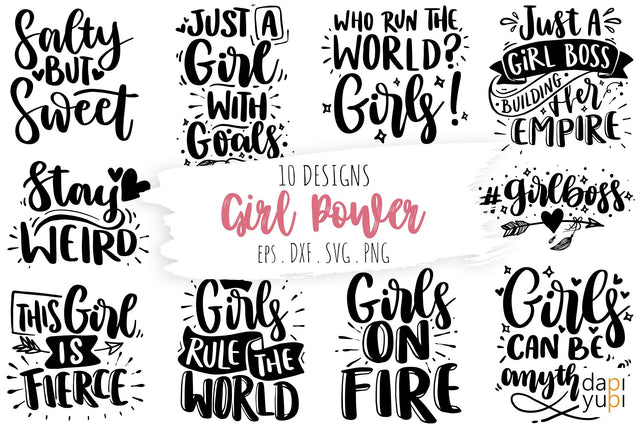 Salty
BUT
Sweet
JUST A
Girl
WITH
Goals.
WHO RUN THE
WORLD?
Girls!
JUST A
GIRL BOSS
BUILDING Her
EMPIRE
Stay
WEIRD
10 DESIGNS
Girl Power
EPS . DXF . SVG . PNG
#girlboss
THIS Girl
IS
FIERCE
Girls
RULE THE
WORLD
Girls
ON
FIRE
Girls
CAN BE
anyth
dapi
yupi